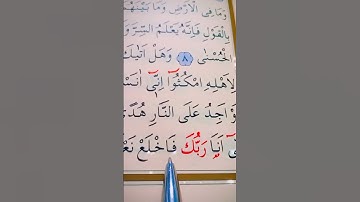 وَمَا فِي الْاَرْضِ وَمَا بَيْنَهُ
بِالْقَوْلِ فَاِنَّهُ يَعْلَمُ السِّرَّ وَ
الْحُسْنٰى ٨ وَهَلْ اَتٰيكَ
لِاَهْلِهِ امْكُثُٓوا اِنّٓى اٰنَسْ
وْ اَجِدُ عَلَى النَّارِ هُدًى
اَنَا۬ رَبُّكَ فَاخْلَعْ نَعْ